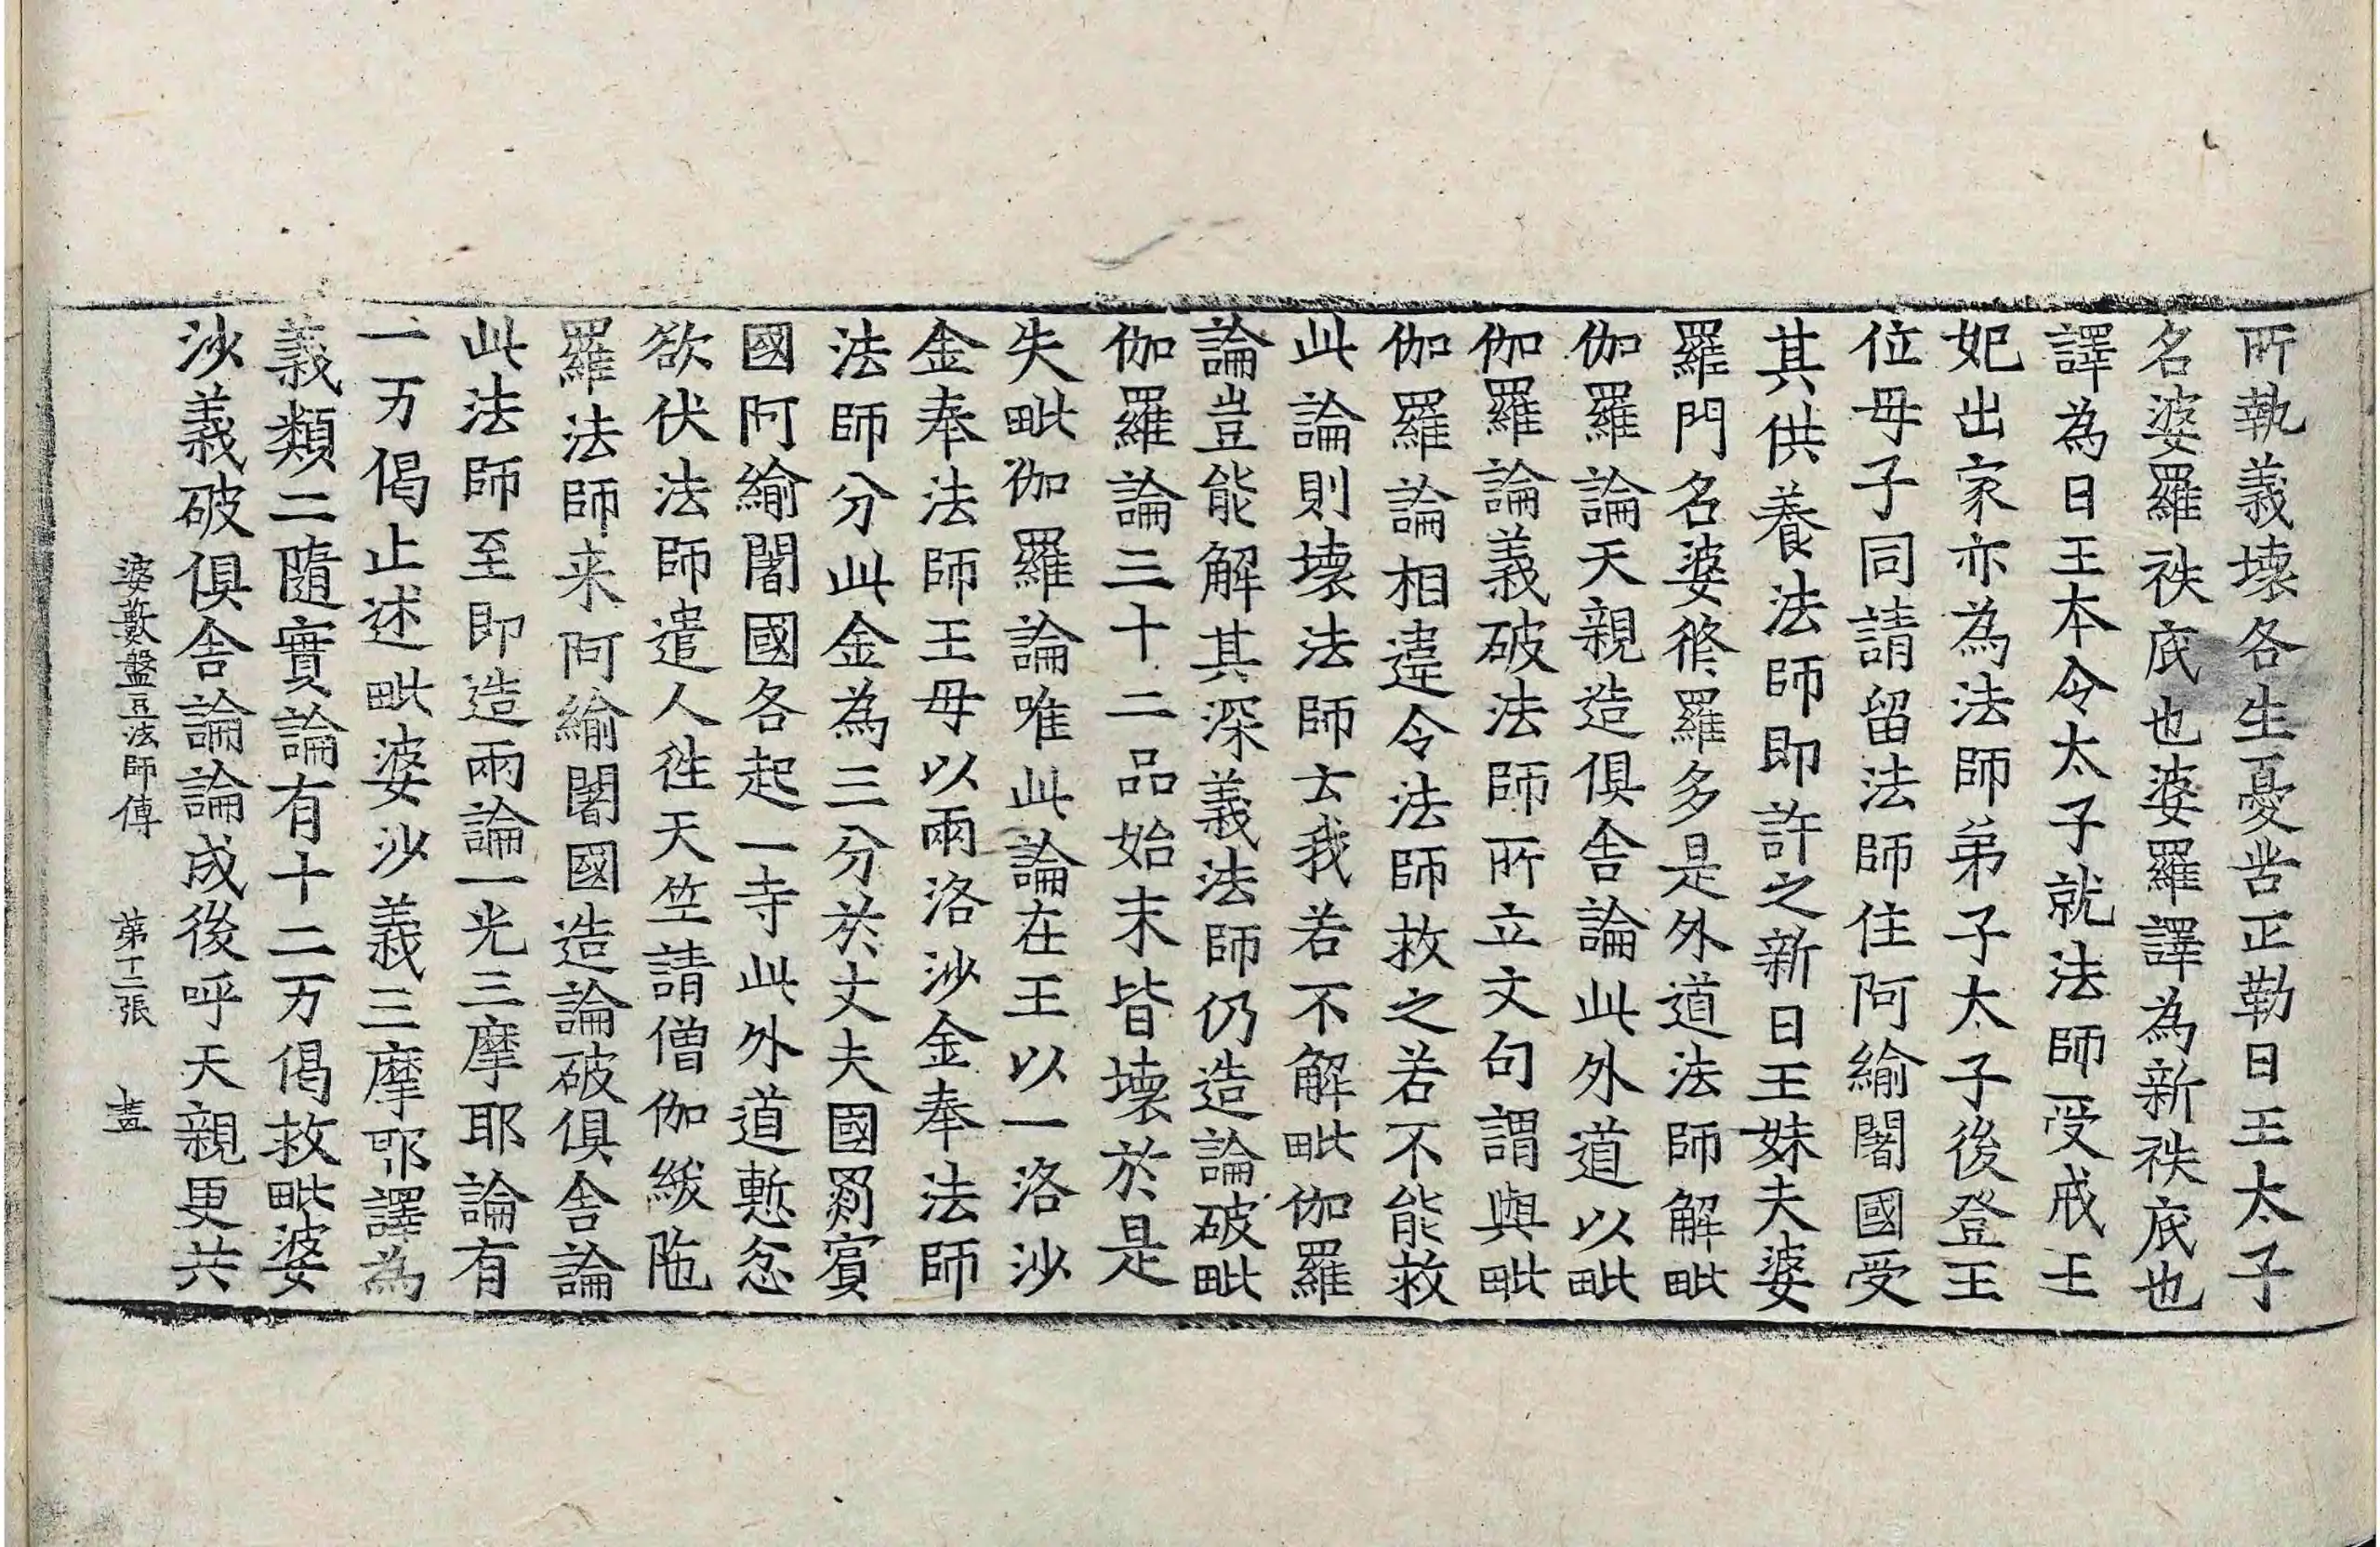 所執義壞各生憂苦正勒日王太子
名婆羅袟底也婆羅譯為新袟底也
譯為日王本令太子就法師受戒王
妃出家亦為法師弟子太子後登王
位母子同請留法師住阿緰闍國受
其供養法師即許之新日王妹夫婆
羅門名婆修羅多是外道法師解毗
伽羅論天親造俱舍論此外道以毗
伽羅論義破法師所立文句謂與毗
伽羅論相違令法師救之若不能救
此論則壞法師云我若不解毗伽羅
論豈能解其深義法師仍造論破毗
伽羅論三十二品始末皆壞於是
失毗伽羅論唯此論在王以一洛沙
金奉法師王母以兩洛沙金奉法師
法師分此金為三分於丈夫國罽賓
國阿緰闍國各起一寺此外道慙忿
欲伏法師遣人往天竺請僧伽綟陁
羅法師来阿緰闍國造論破俱舍論
此法師至即造兩論一光三摩耶論有
一万偈止述毗婆沙義三摩耶譯為
義類二隨實論有十二万偈救毗婆
沙義破俱舍論論成後呼天親更共
婆藪盤豆法師傳　第十二張　㐮